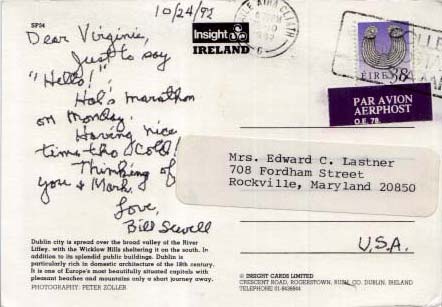 SP34
10/24/92
Dear Virginie,
Just to say
"Hello!"
Hal's marathon
on Monday.
Having nice
time, tho cold!
Thinking of
you & Mark.
Love,
Bill Sewell
Dublin city is spread over the broad valley of the River
Liffey, with the Wicklow Hills sheltering it on the south. In
addition to its splendid public buildings. Dublin is
particularly rich in domestic architecture of the 18th century.
It is one of Europe's most beautifully situated capitals with
pleasant beaches and mountains only a short journey away.
PHOTOGRAPHY: PETER ZÖLLER
Insight
IRELAND
ÉIRE 38
PAR AVION
AERPHOST
O.E. 78.
Mrs. Edward C. Lastner
708 Fordham Street
Rockville, Maryland 20850
U.S.A.
© INSIGHT CARDS LIMITED
CRESCENT ROAD, ROGERSTOWN, RUSH, CO. DUBLIN, IRELAND